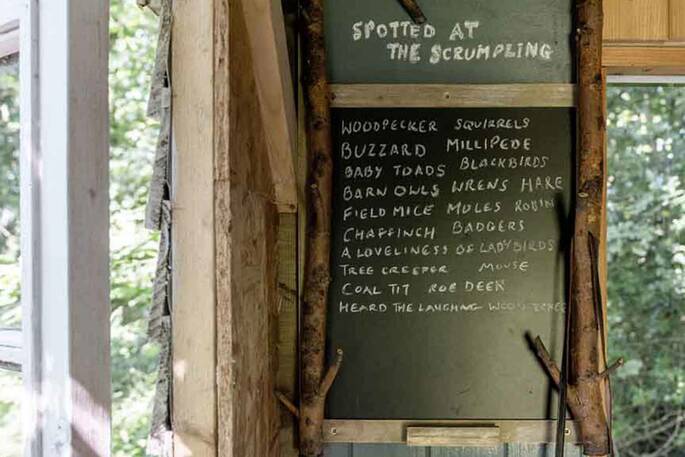 SPOTTED AT
THE SCRUMPLING
WOODPECKER SQUIRRELS
BUZZARD MILLIPEDE
BABY TOADS BLACKBIRDS
BARN OWLS WRENS HARE
FIELD MICE MOLES ROBIN
CHAFFINCH BADGERS
A LOVELINESS OF LADYBIRDS
TREE CREEPER MOUSE
COAL TIT ROE DEER
HEARD THE LAUGHING WOODPECKER